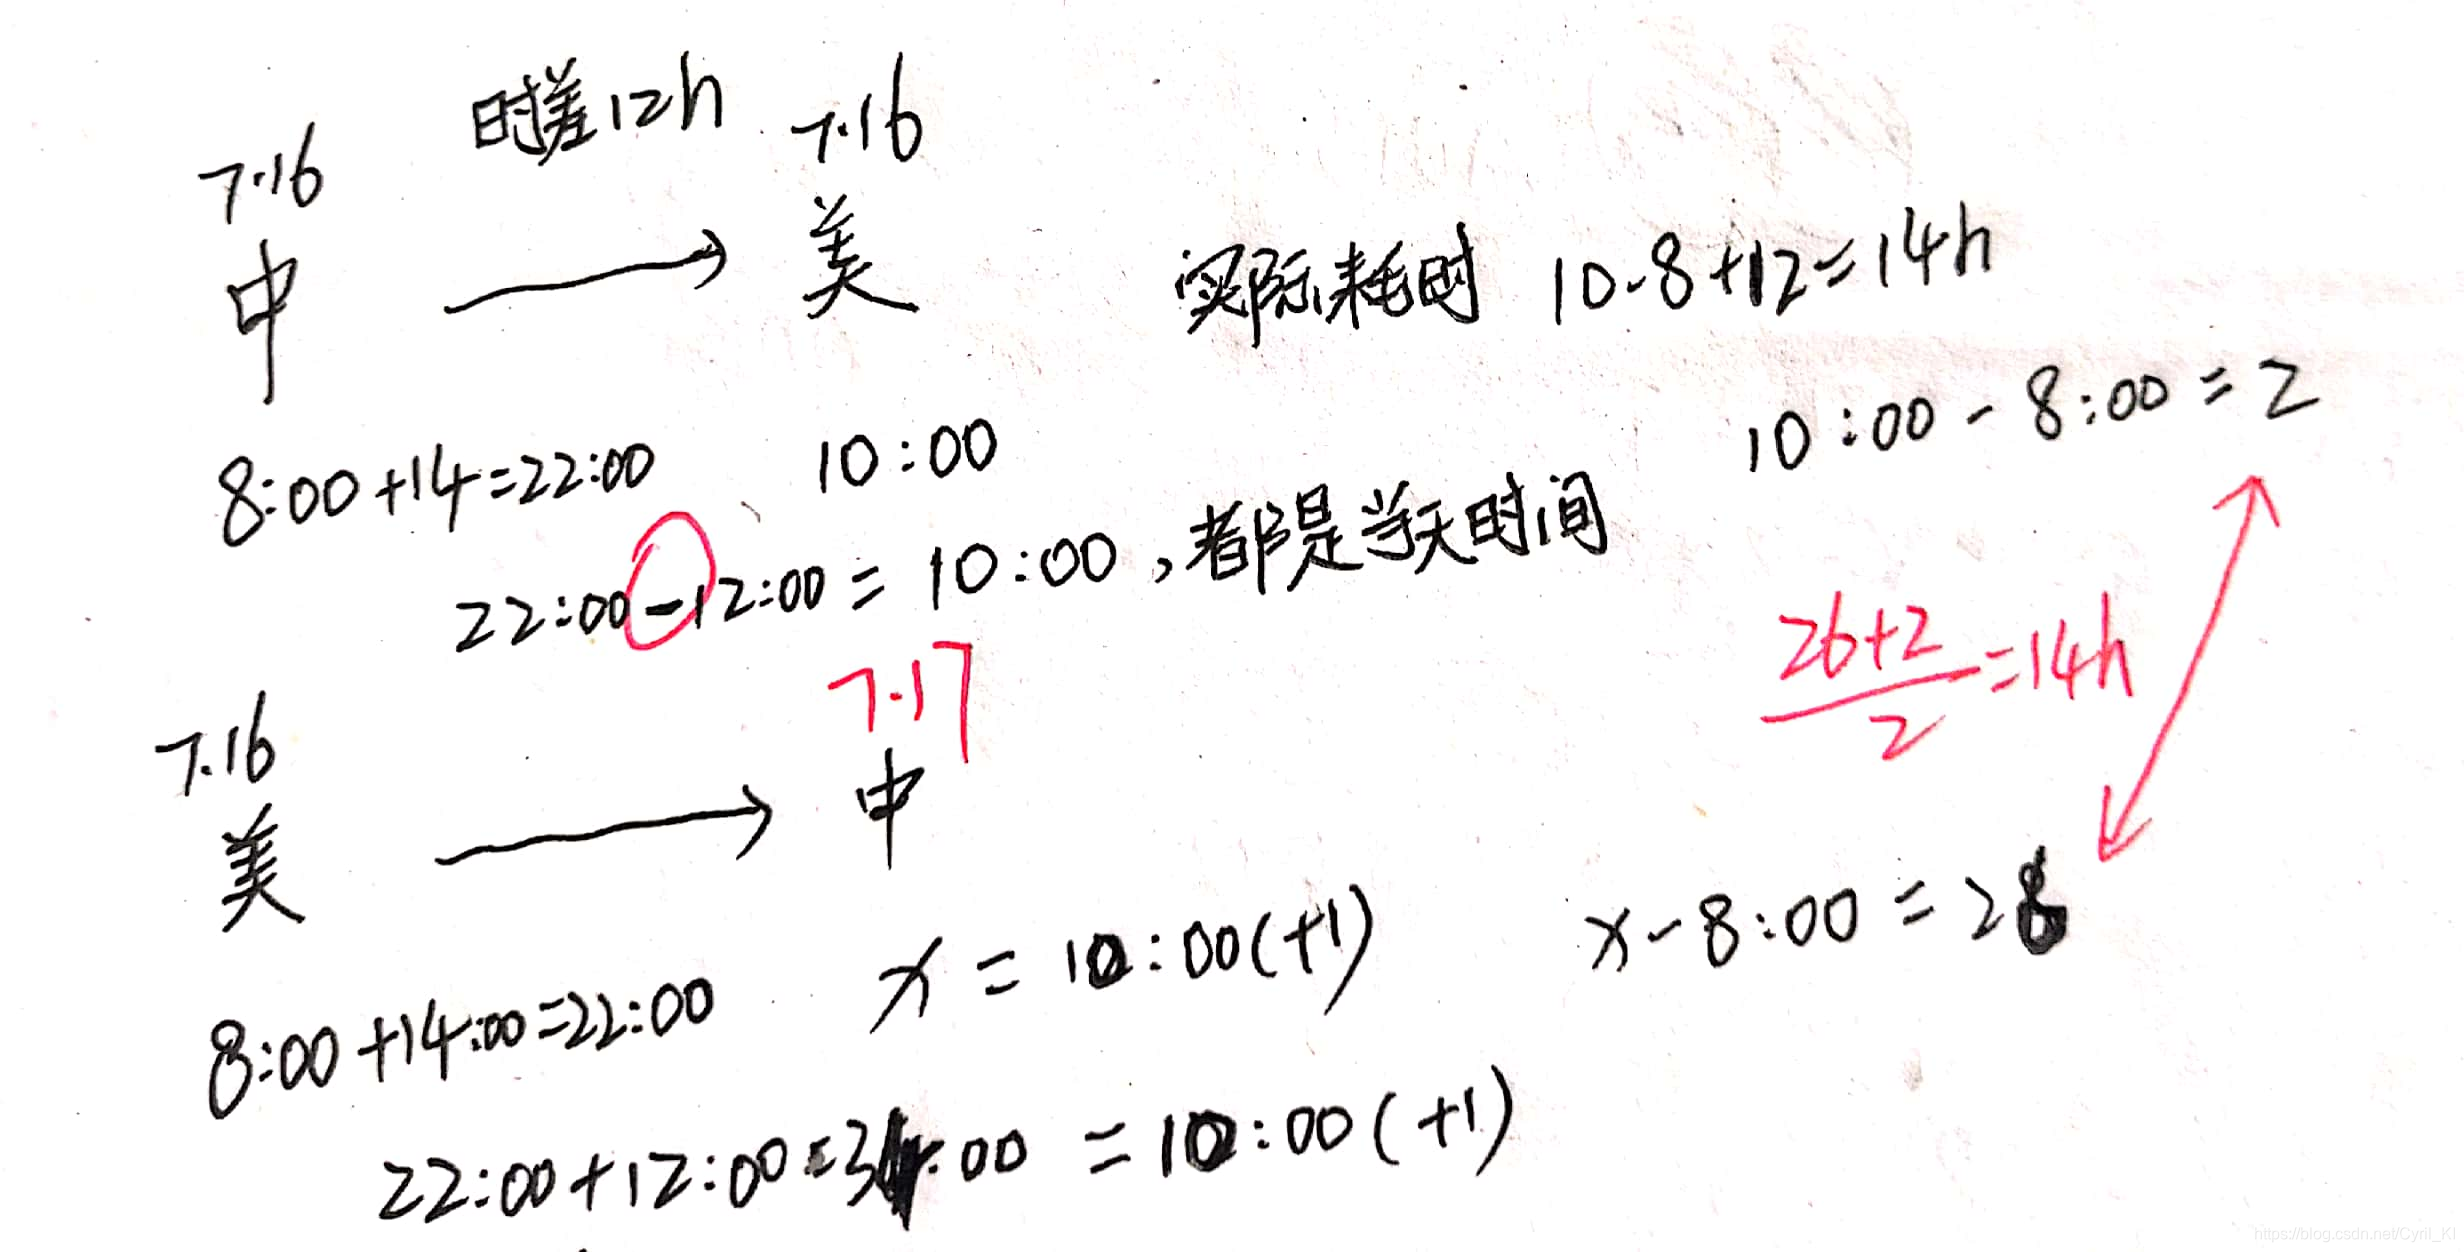 时差12h
7.16
7.16
中
美
实际耗时 10-8+12=14h
8:00+14=22:00
10:00
10:00-8:00=2
22:00-12:00=10:00,都是当天时间
26+2
2
=14h
7.16
7.17
美
中
x=10:00(+1)
x-8:00=26
8:00+14:00=22:00
22:00+12:00=34:00=10:00(+1)
https://blog.csdn.net/Cyril_KI